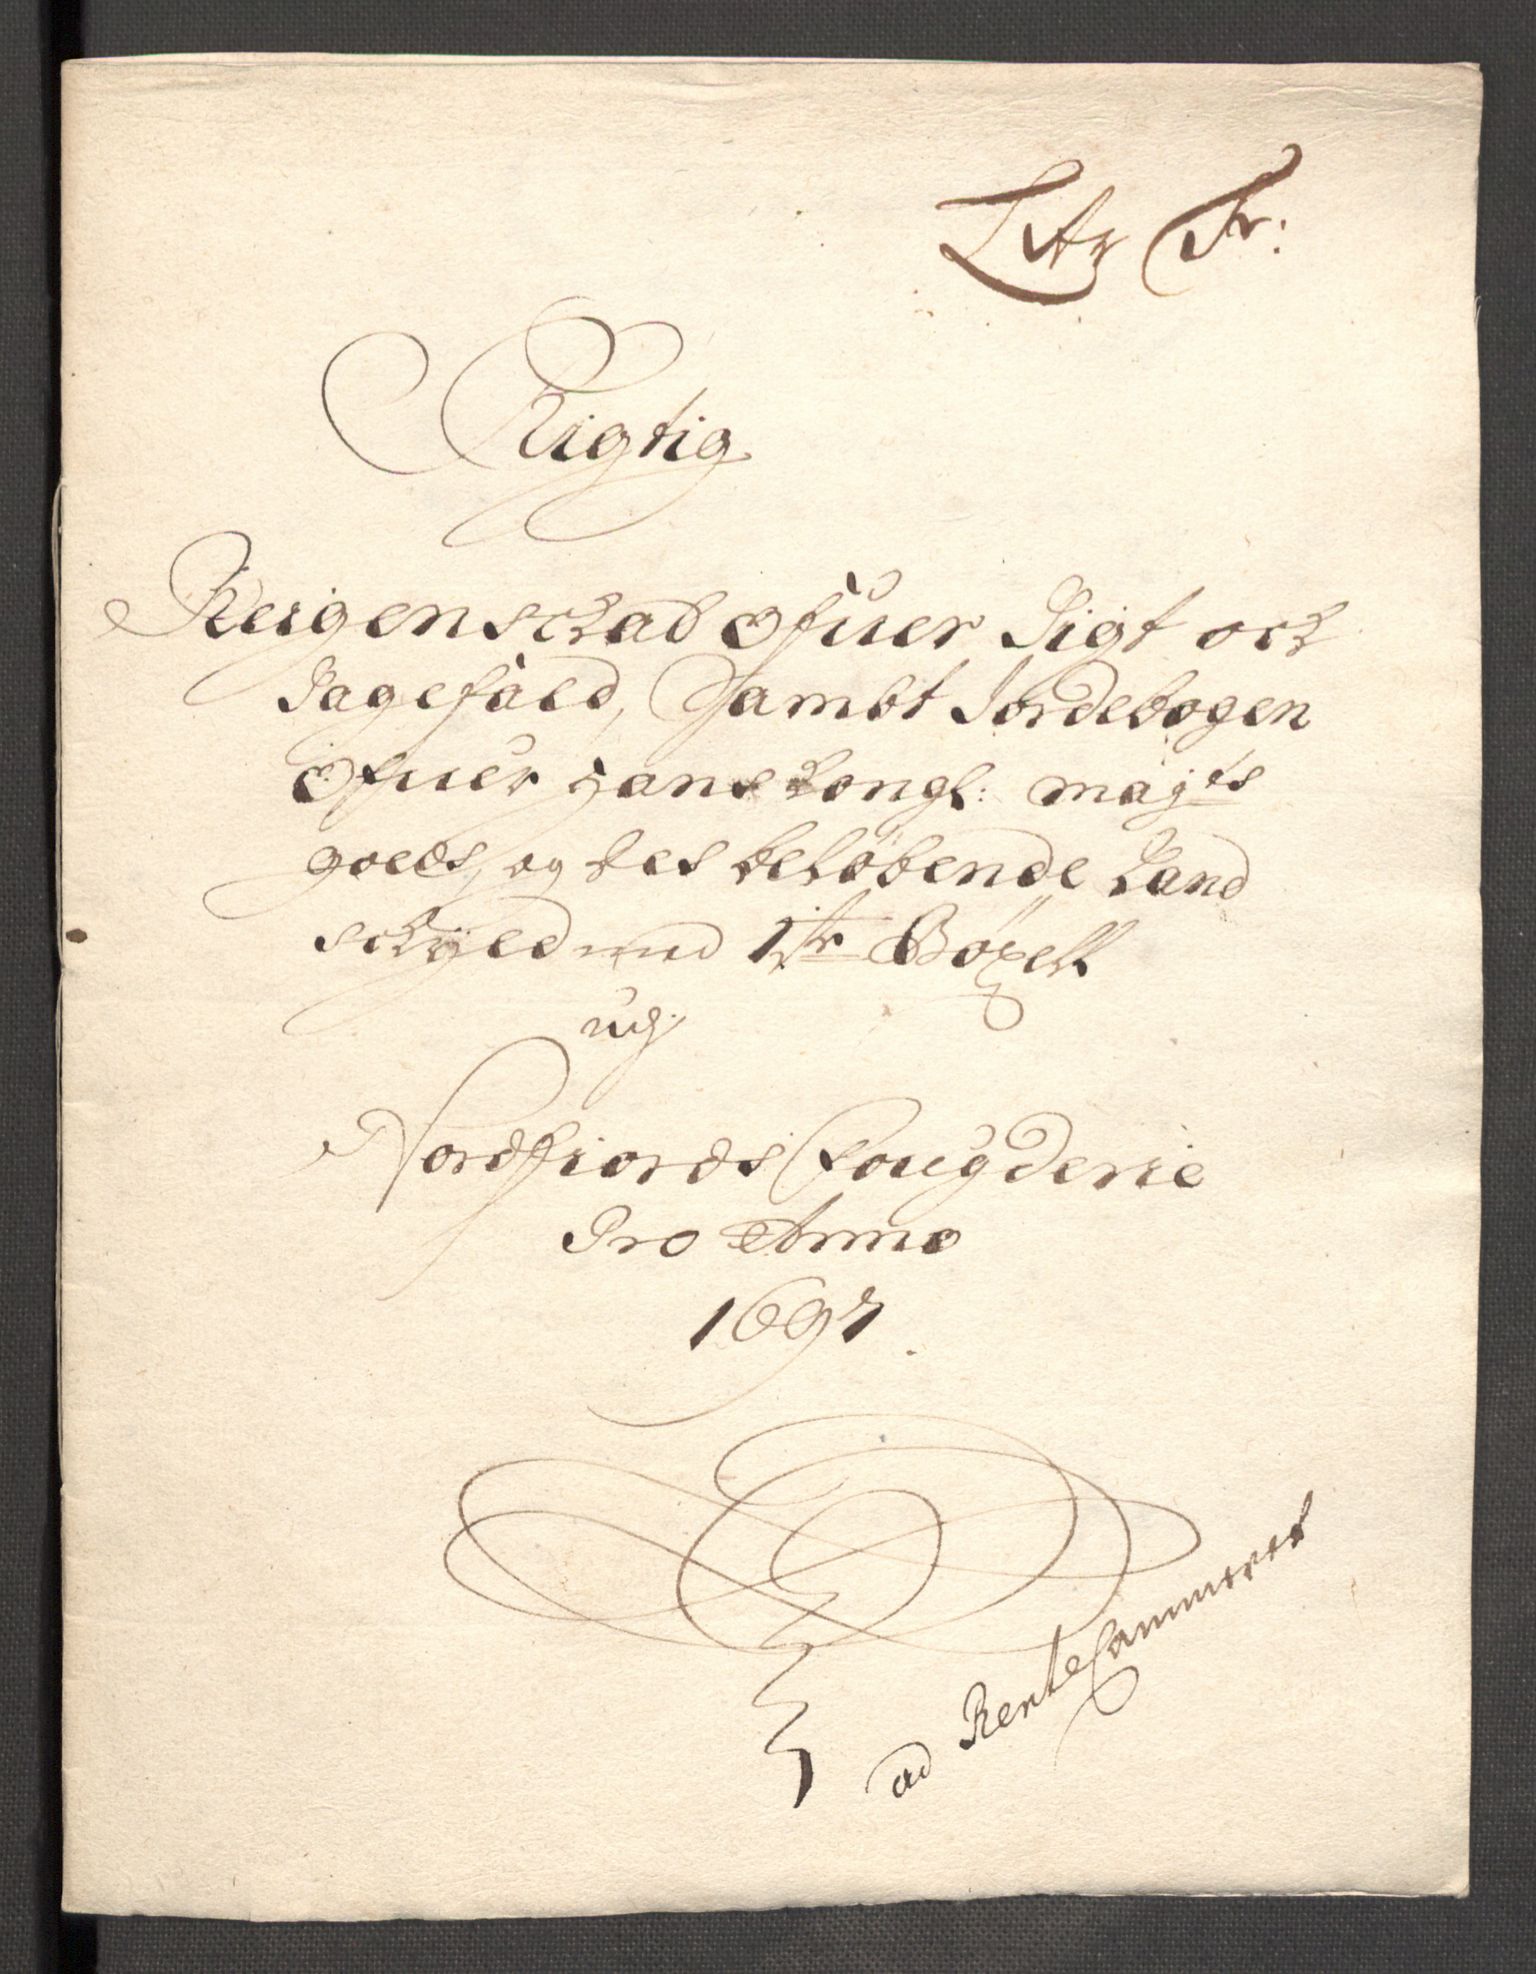 Litr F:
Rigtig
Reigenschab ofuer Sigt och
Sagefald, Sambt Jordebogen
ofuer hans Kongl: Mayts
goeds, og des beløbende Land
schyld med 1ste Böxell
udj
Nordfiords Fougderie
Pro Anno
1697.
ad RenteCammeret